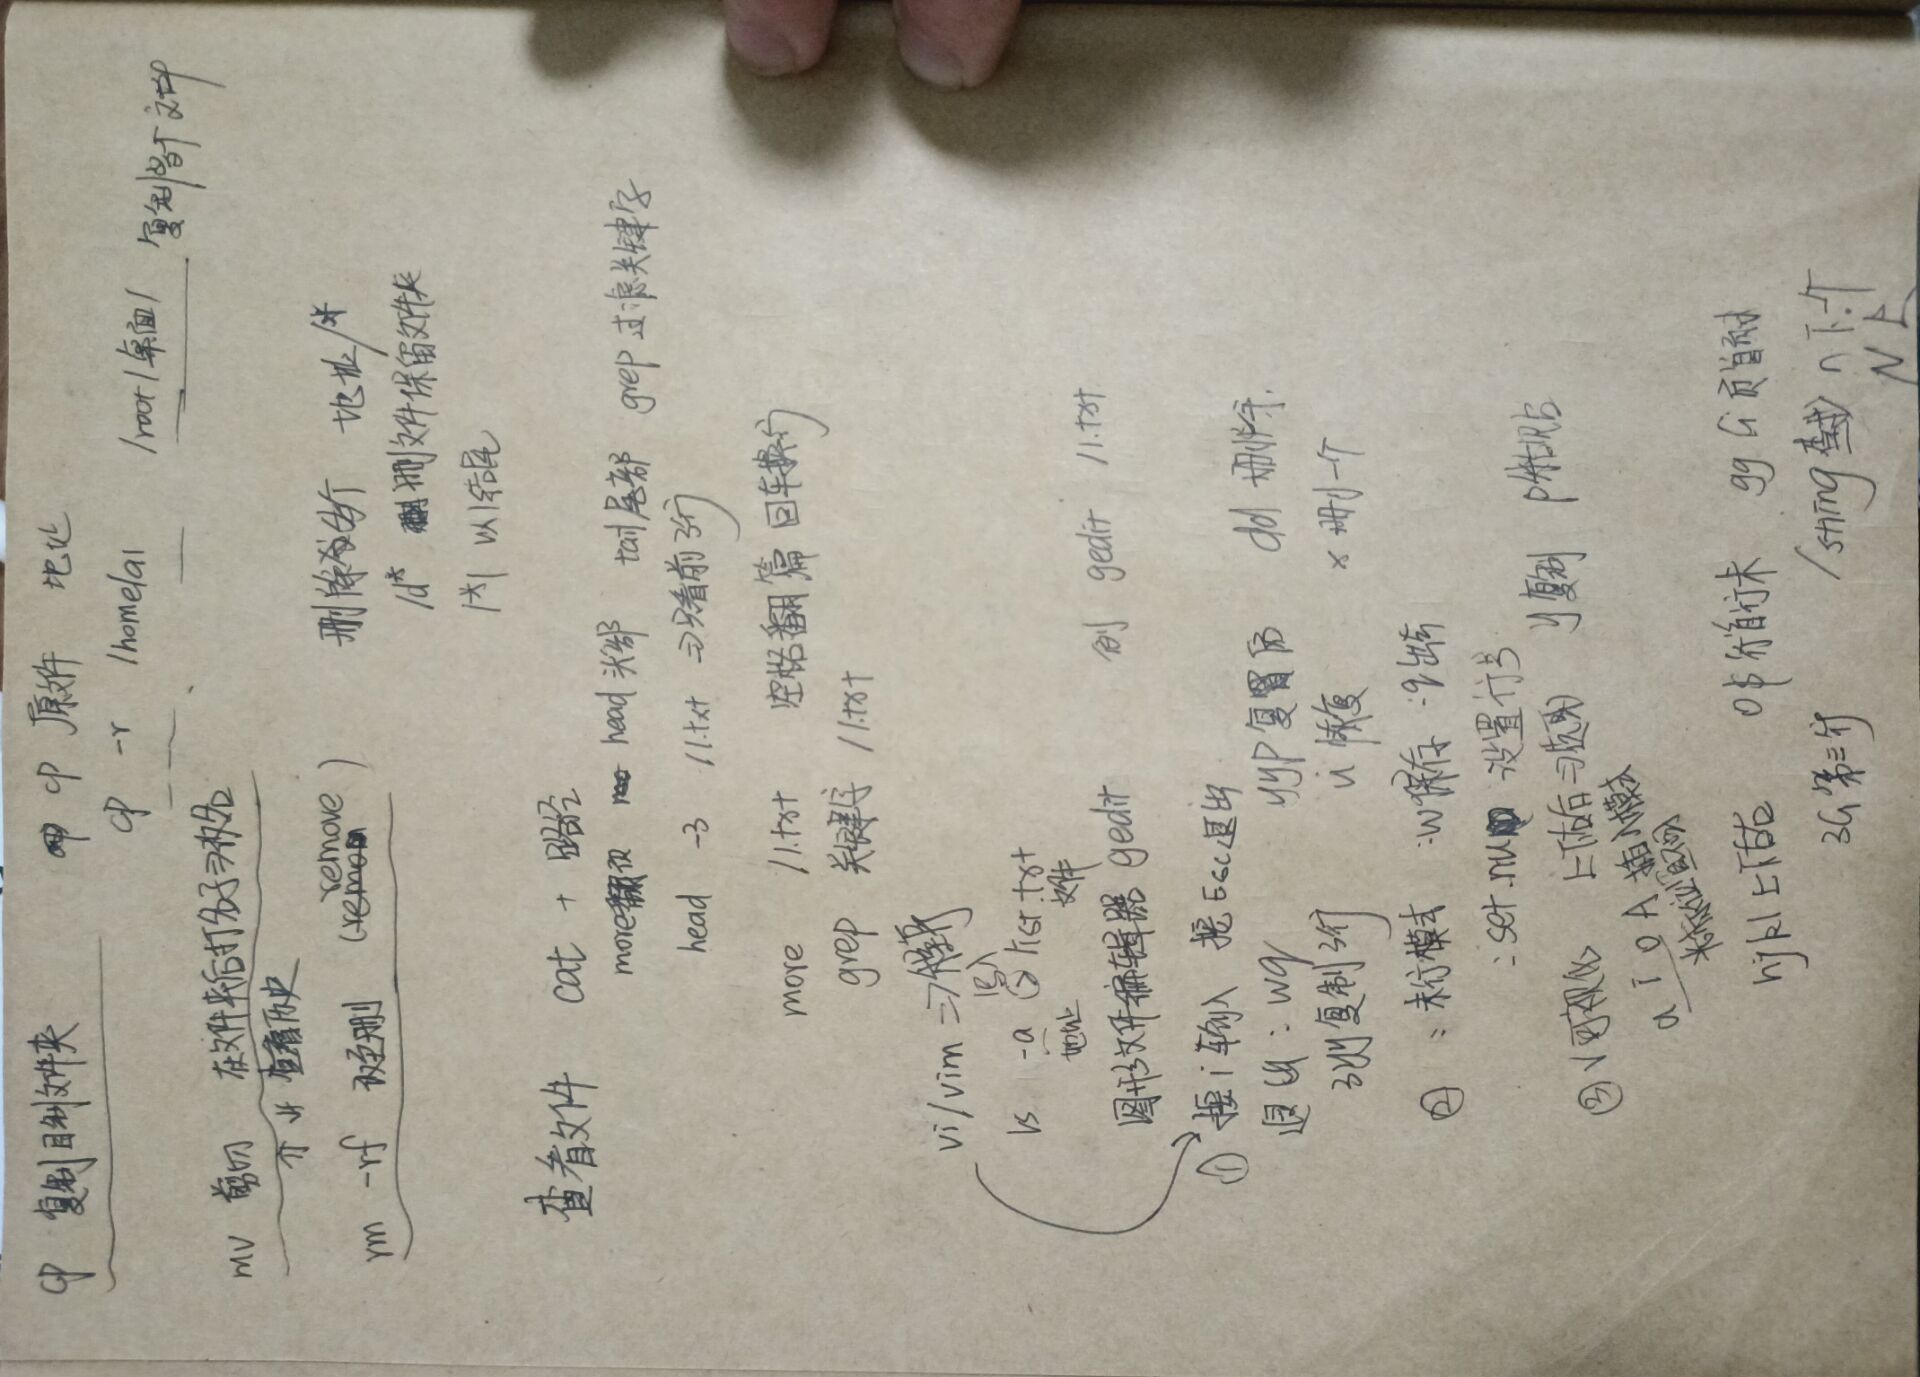 cp 复制目制文件夹 cp 原文件 地址
cp -r /home/a1 /root/桌面/ 复制当个文件
mv 剪切 在文件夹后打名子⇒改名
个 ↓↑ 查看历史
rm -rf 删 (remove) 删除 地址/*
/d* 删文件保留文件夹
/*1 以1结尾
查看文件 cat + 路径
more翻页 head 头部 tail 尾部 grep 过滤关键字
head -3 /1.txt ⇒只看前3行
more /1.txt 空格翻篇 回车换行
grep 关键字 /1.txt
vi/vim ⇒程序
写入
ls -a > list.txt
地址 文件
图形文件编辑器 gedit 例 gedit /1.txt
① 按i 输入 按Esc退出
退出:wq yyp复 dd 删
3yy复制3行 u 恢复 x 删一个
② :末行模式 :w保存 :q出去
:set nu 设置行号
③ v可视化 上下右后⇒选取 y复制 p粘贴
a i o A 插入模式
光标位置不同
hjkl 上下左右 0$行首行末 gg G 页首
3G 第三行 /string 查找 n 下一个
N 上